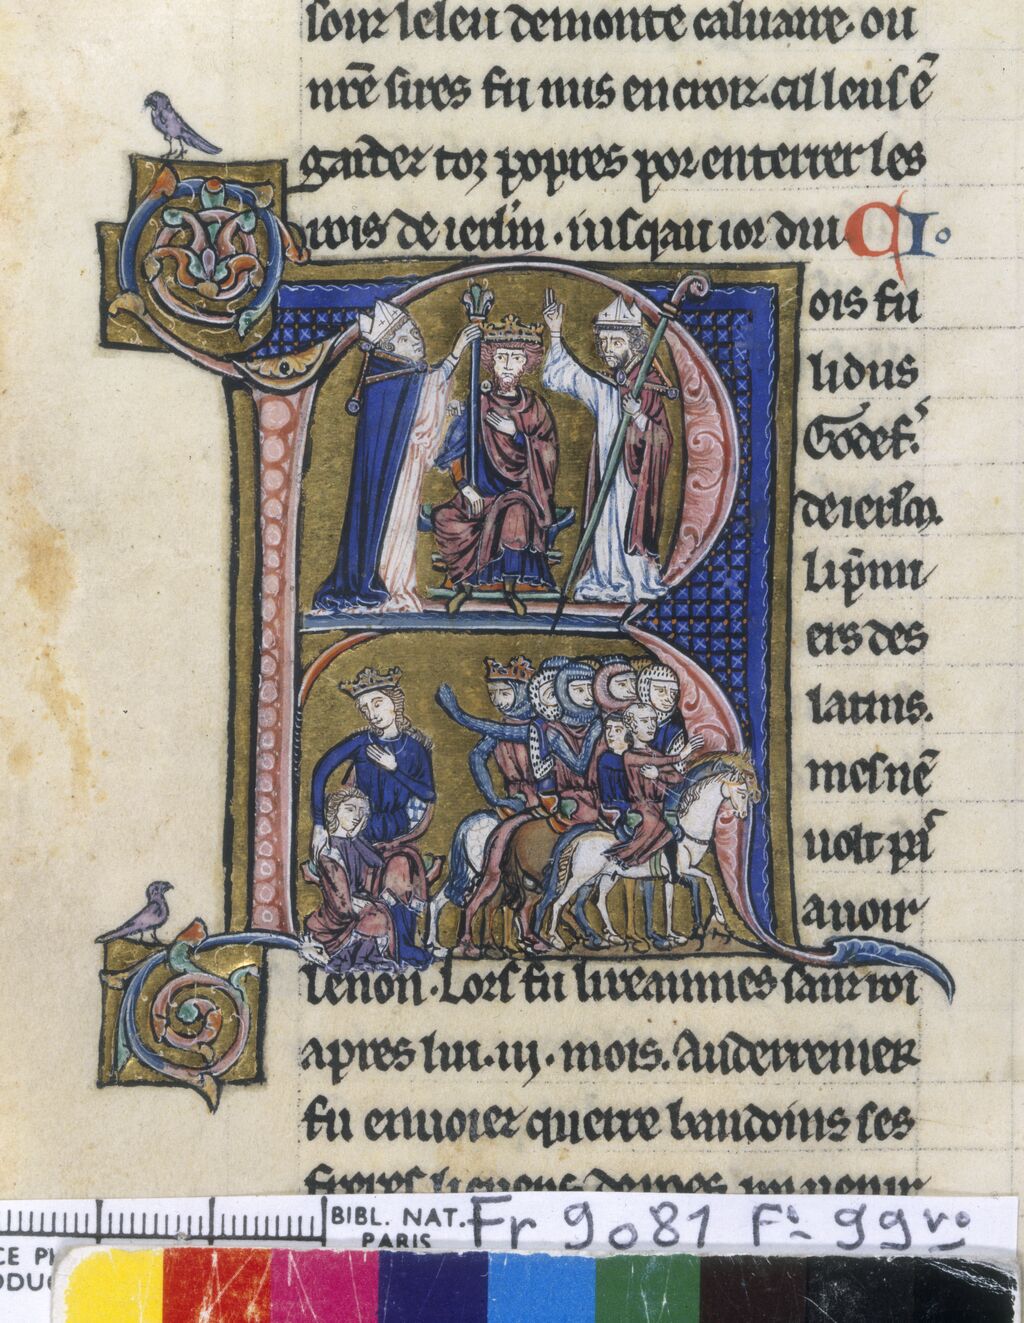 sour le leu de monte caluaire. ou
nr̄e sires fu mis en croiz. cil leus ē
gardez toz propres por enterrer les
rois de ierlm̄. iusqau ior dui CI°
R
ois fu
li dus
Godef.
de ierlm.
li p̄mi
ers des
latins.
mes nē
uolt pas
auoir
le non. Lors fu li reaumes sanz roi
apres lui .iii. mois. Au derrenier
fu enuoiez querre baudoins ses
BIBL. NAT. Fr 9081 F° 99 vo
PARIS